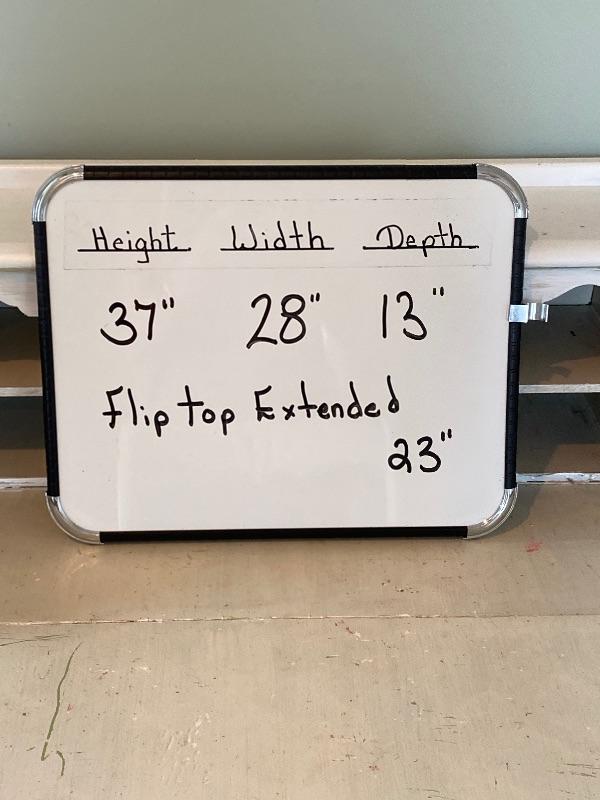 Height Width Depth
37" 28" 13"
Flip top Extended
23"